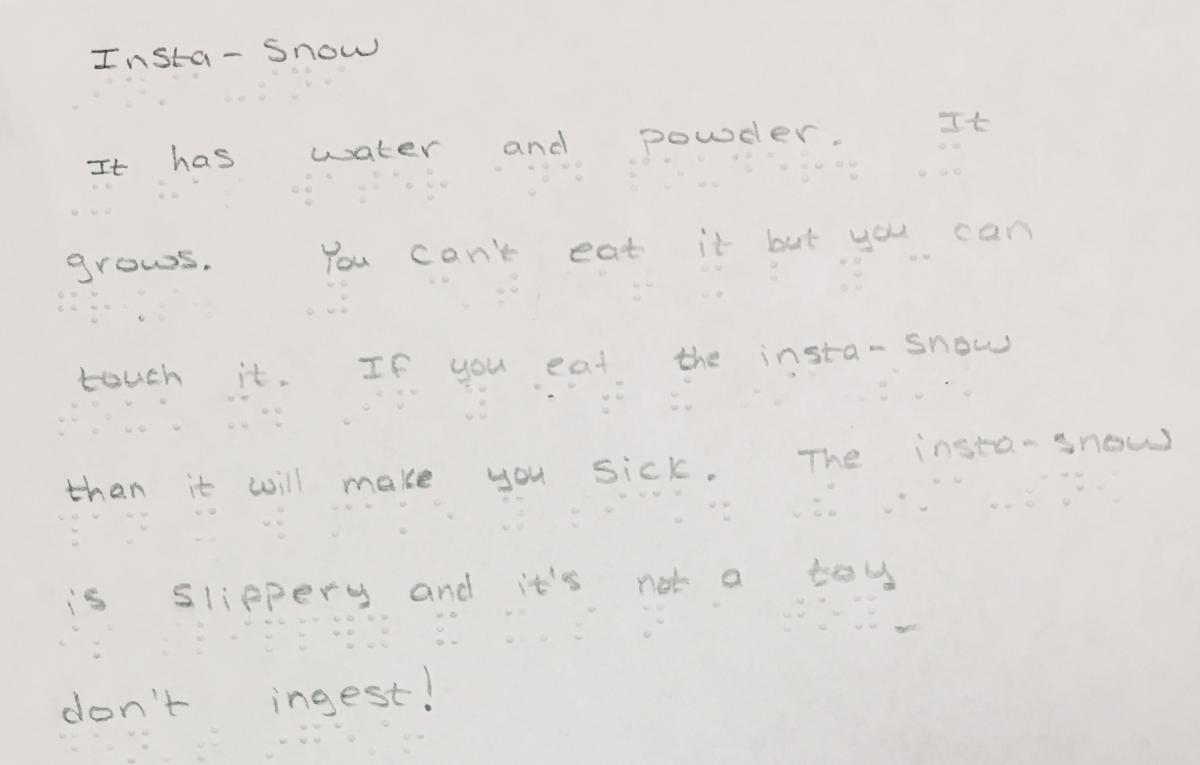 Insta - Snow
It has water and powder. It
grows. You can't eat it but you can
touch it. If you eat the insta - snow
than it will make you sick. The insta - snow
is slippery and it's not a toy
don't ingest!